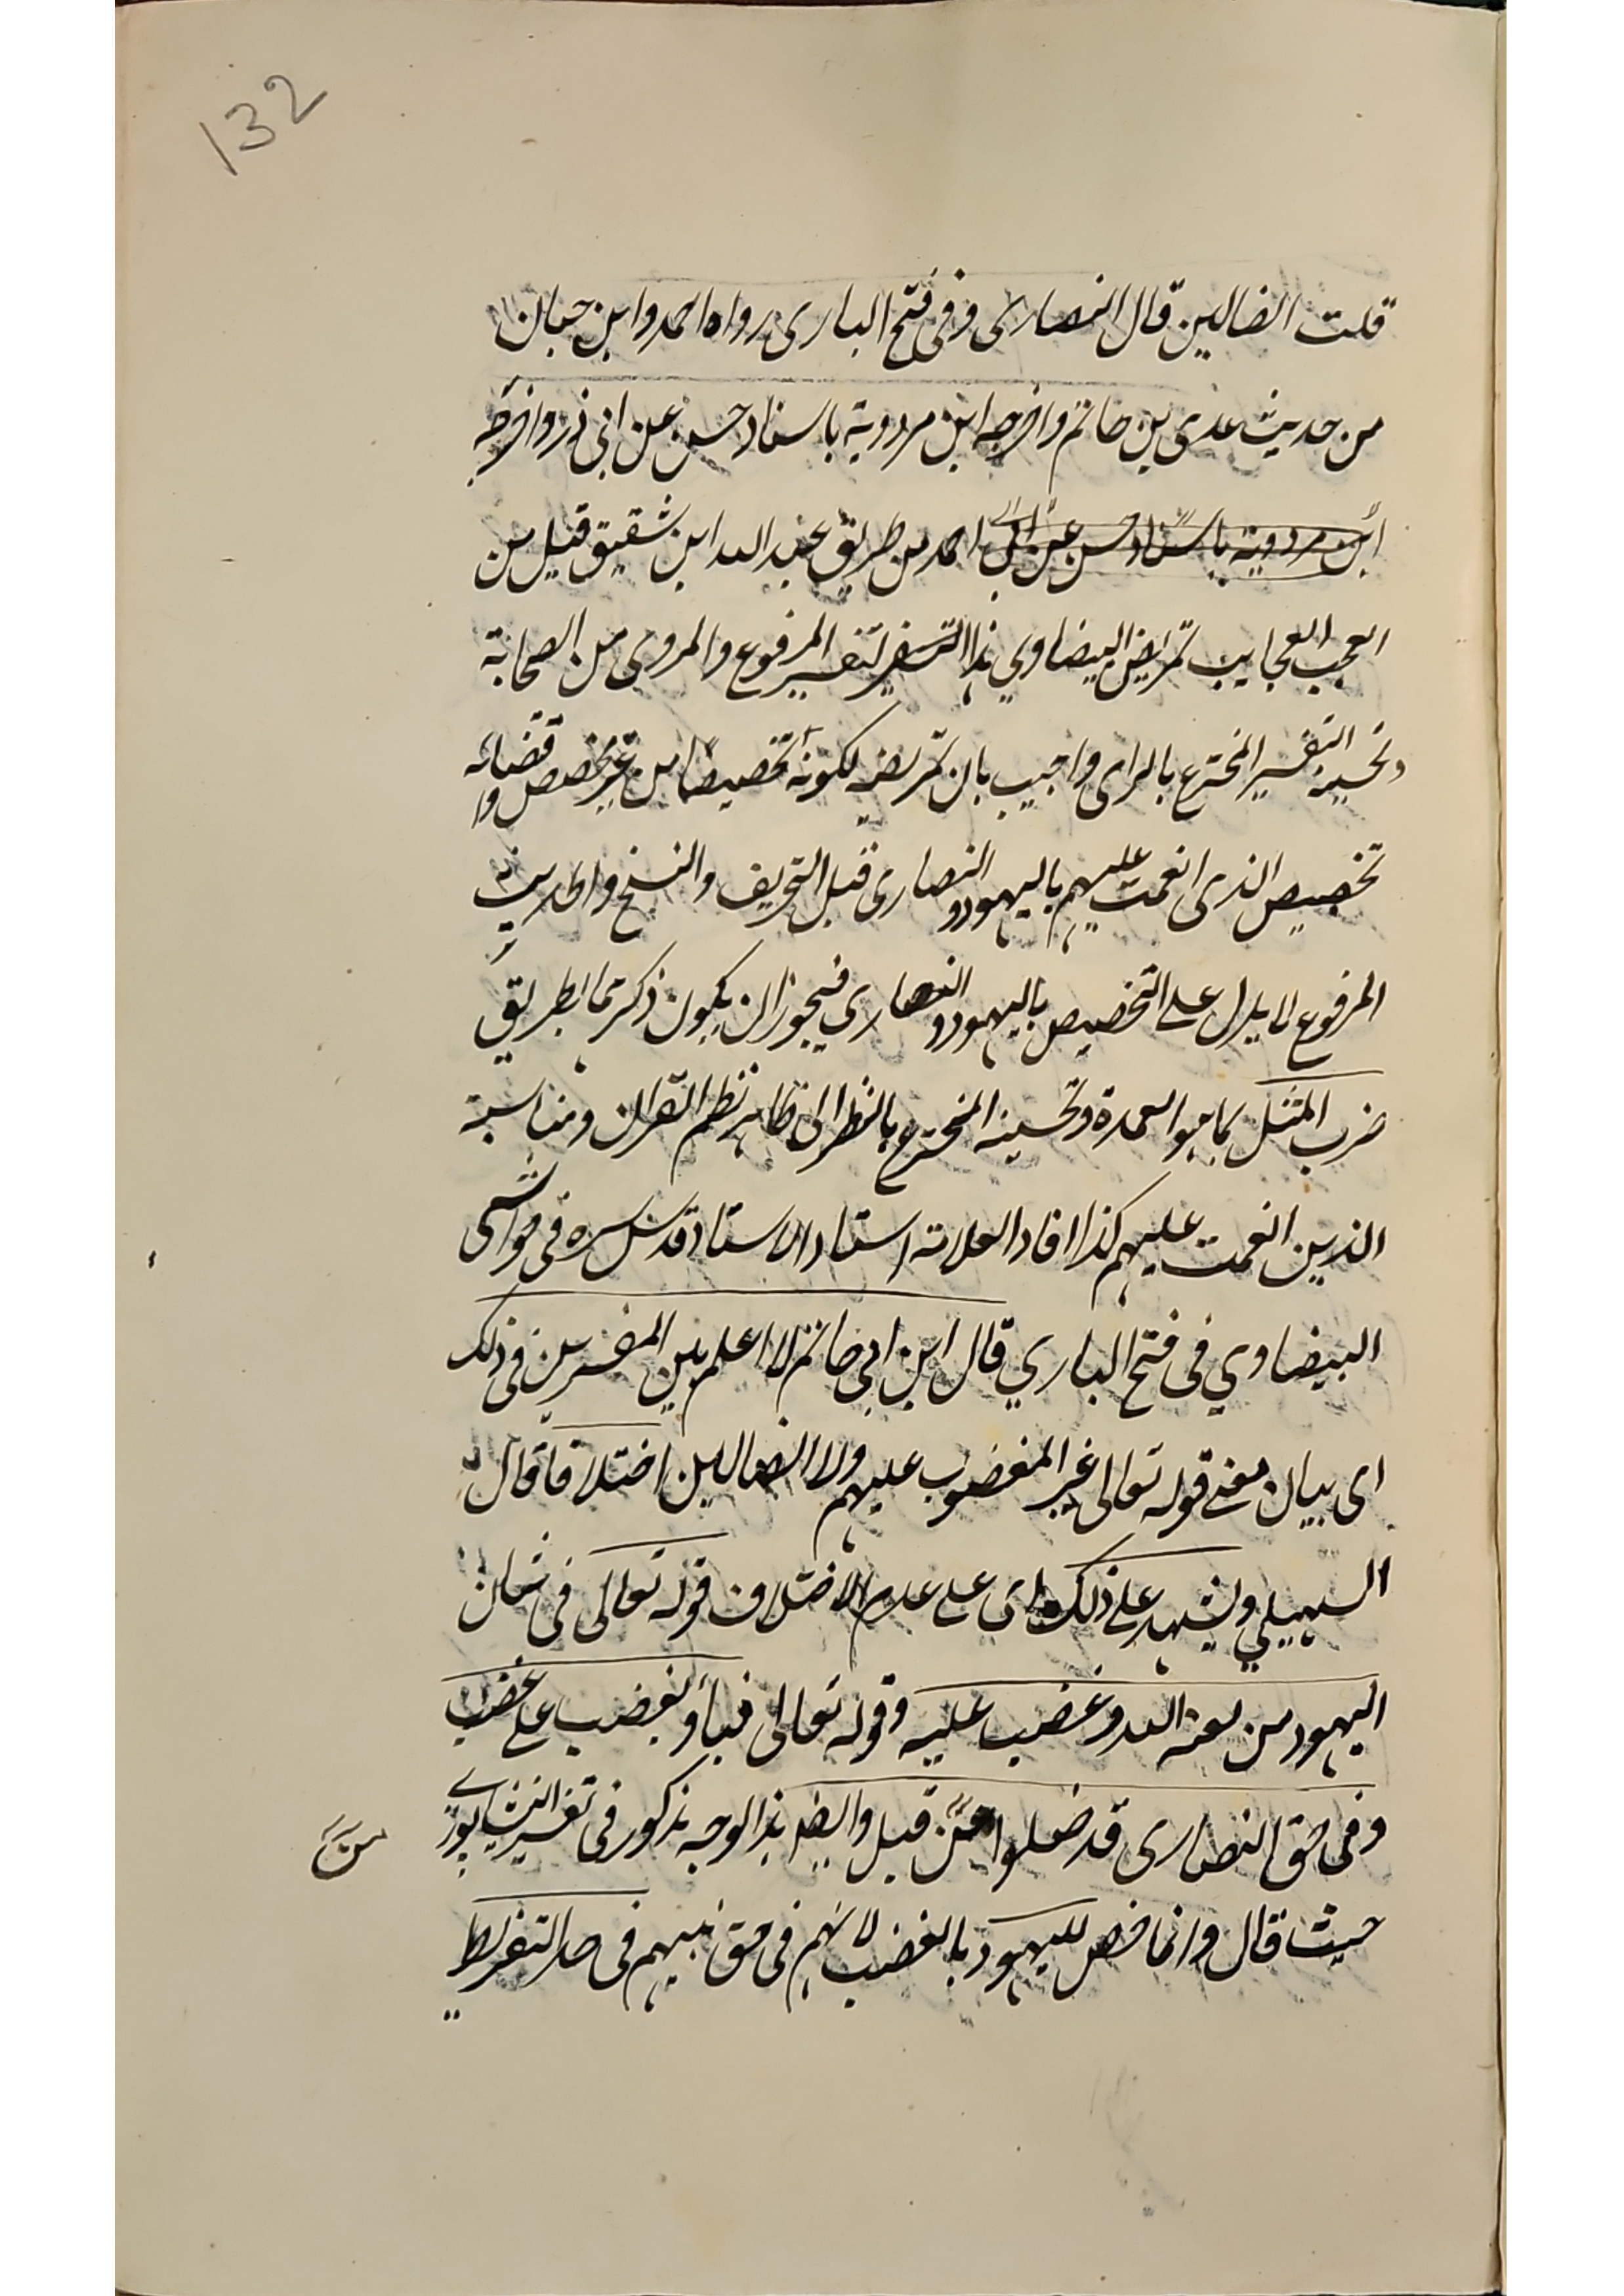 132
قلت الضالين قال النصارى وفى فتح البارى رواه احمد وابن حبان
من حديث عدى بن حاتم واخرجه ابن مردوية باسناد حسن عن ابى ذر واخرجه
ابن مردوية باسناد حسن عن ابى احمد من طريق عبد الله ابن شقيق قيل من
العجب العجايب تمريض البيضاوي هذا التفسير لتفسير المرفوع والمروى من الصحابة
وتحسينه التفسير المخترع بالراى واجيب بان تمريضه لكونه تخصيصا من غير مخصص واقتضائه
تخصيص الذى انعمت عليهم باليهود والنصارى قبل التحريف والنسخ والحديث
المرفوع لا يدل على التخصيص باليهود والنصاري فيجوز ان يكون ذكرهما بطريق
ضرب المثل كما هو العمدة وتحسينه المخترع بالنظر الى ظاهر نظم القران ومناسبة
الذين انعمت عليهم كذا افاد العلامة استاد الاستاد قدس سره فى حواشى
البيضاوي فى فتح الباري قال ابن ابى حاتم لا اعلم بين المفسرين فى ذلك
اى بيان معنى قوله تعالى غير المغضوب عليهم ولا الضالين اختلافا قال
السهيلي ويشهد على ذلك اى على عدم الاختلاف قوله تعالى فى شان
اليهود من لعنه الله وغضب عليه وقوله تعالى فبأو بغضب على غضب
وفى حق النصارى قد ضلوا من قبل وايضا هذا الوجه مذكور فى تفسير النيشابورى
حيث قال وانما خص لليهود بالغضب لانهم فى حق نبيهم فى حد التفريط